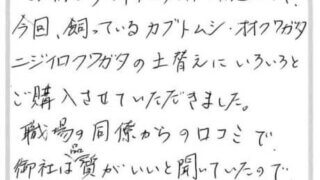 今回、飼っているカブトムシ・オオクワガタ
ニジイロクワガタの土替えにいろいろと
ご購入させていただきました。
職場の同僚からの口コミで
御社は品質がいいと聞いていたので